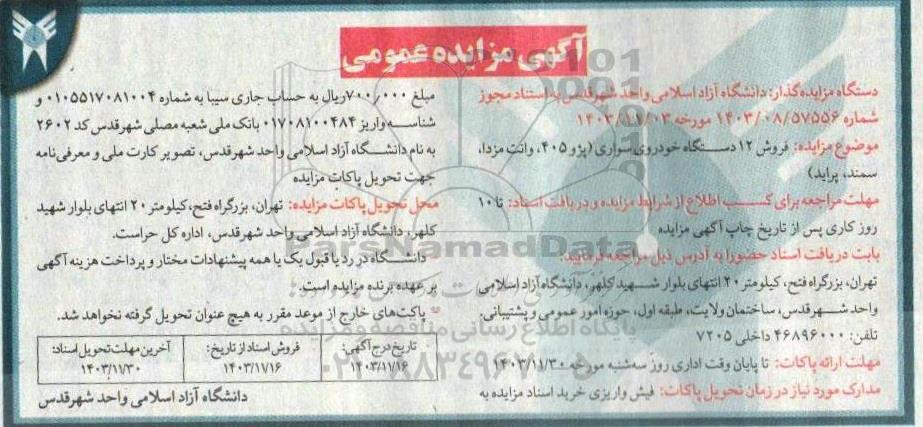 آگهی مزایده عمومی
دستگاه مزایده‌گذار: دانشگاه آزاد اسلامی واحد شهرقدس به استناد مجوز
شماره ۱۴۰۳/۰۸/۵۷۵۵۶ مورخه ۱۴۰۳/۱۱/۰۳
موضوع مزایده: فروش ۱۲ دستگاه خودروی سواری (پژو ۴۰۵، وانت مزدا،
سمند، پراید)
مهلت مراجعه برای کسب اطلاع از شرایط مزایده و دریافت اسناد: تا ۱۰
روز کاری پس از تاریخ چاپ آگهی مزایده
بابت دریافت اسناد حضورا به آدرس ذیل مراجعه فرمایید:
تهران، بزرگراه فتح، کیلومتر ۲۰ انتهای بلوار شهید کلهر، دانشگاه آزاد اسلامی
واحد شهرقدس، ساختمان ولایت، طبقه اول، حوزه امور عمومی و پشتیبانی.
تلفن: ۴۶۸۹۶۰۰۰ داخلی ۷۲۰۵
مهلت ارائه پاکات: تا پایان وقت اداری روز سه‌شنبه مورخه ۱۴۰۳/۱۱/۳۰
مدارک مورد نیاز در زمان تحویل پاکات: فیش واریزی خرید اسناد مزایده به
مبلغ ۷۰۰/۰۰۰ ریال به حساب جاری سیبا به شماره ۰۱۰۵۵۱۷۰۸۱۰۰۴ و
شناسه واریز ۰۱۷۰۸۱۰۰۴۸۴ بانک ملی شعبه مصلی شهرقدس کد ۲۶۰۲
به نام دانشگاه آزاد اسلامی واحد شهرقدس، تصویر کارت ملی و معرفی‌نامه
جهت تحویل پاکات مزایده
محل تحویل پاکات مزایده: تهران، بزرگراه فتح، کیلومتر ۲۰ انتهای بلوار شهید
کلهر، دانشگاه آزاد اسلامی واحد شهرقدس، اداره کل حراست.
دانشگاه در رد یا قبول یک یا همه پیشنهادات مختار و پرداخت هزینه آگهی
بر عهده برنده مزایده است.
پاکت‌های خارج از موعد مقرر به هیچ عنوان تحویل گرفته نخواهد شد.
تاریخ درج آگهی: ۱۴۰۳/۱۱/۱۶
فروش اسناد از تاریخ: ۱۴۰۳/۱۱/۱۶
آخرین مهلت تحویل اسناد: ۱۴۰۳/۱۱/۳۰
دانشگاه آزاد اسلامی واحد شهرقدس
ParsNamadData
پایگاه اطلاع رسانی مناقصه و مزایده